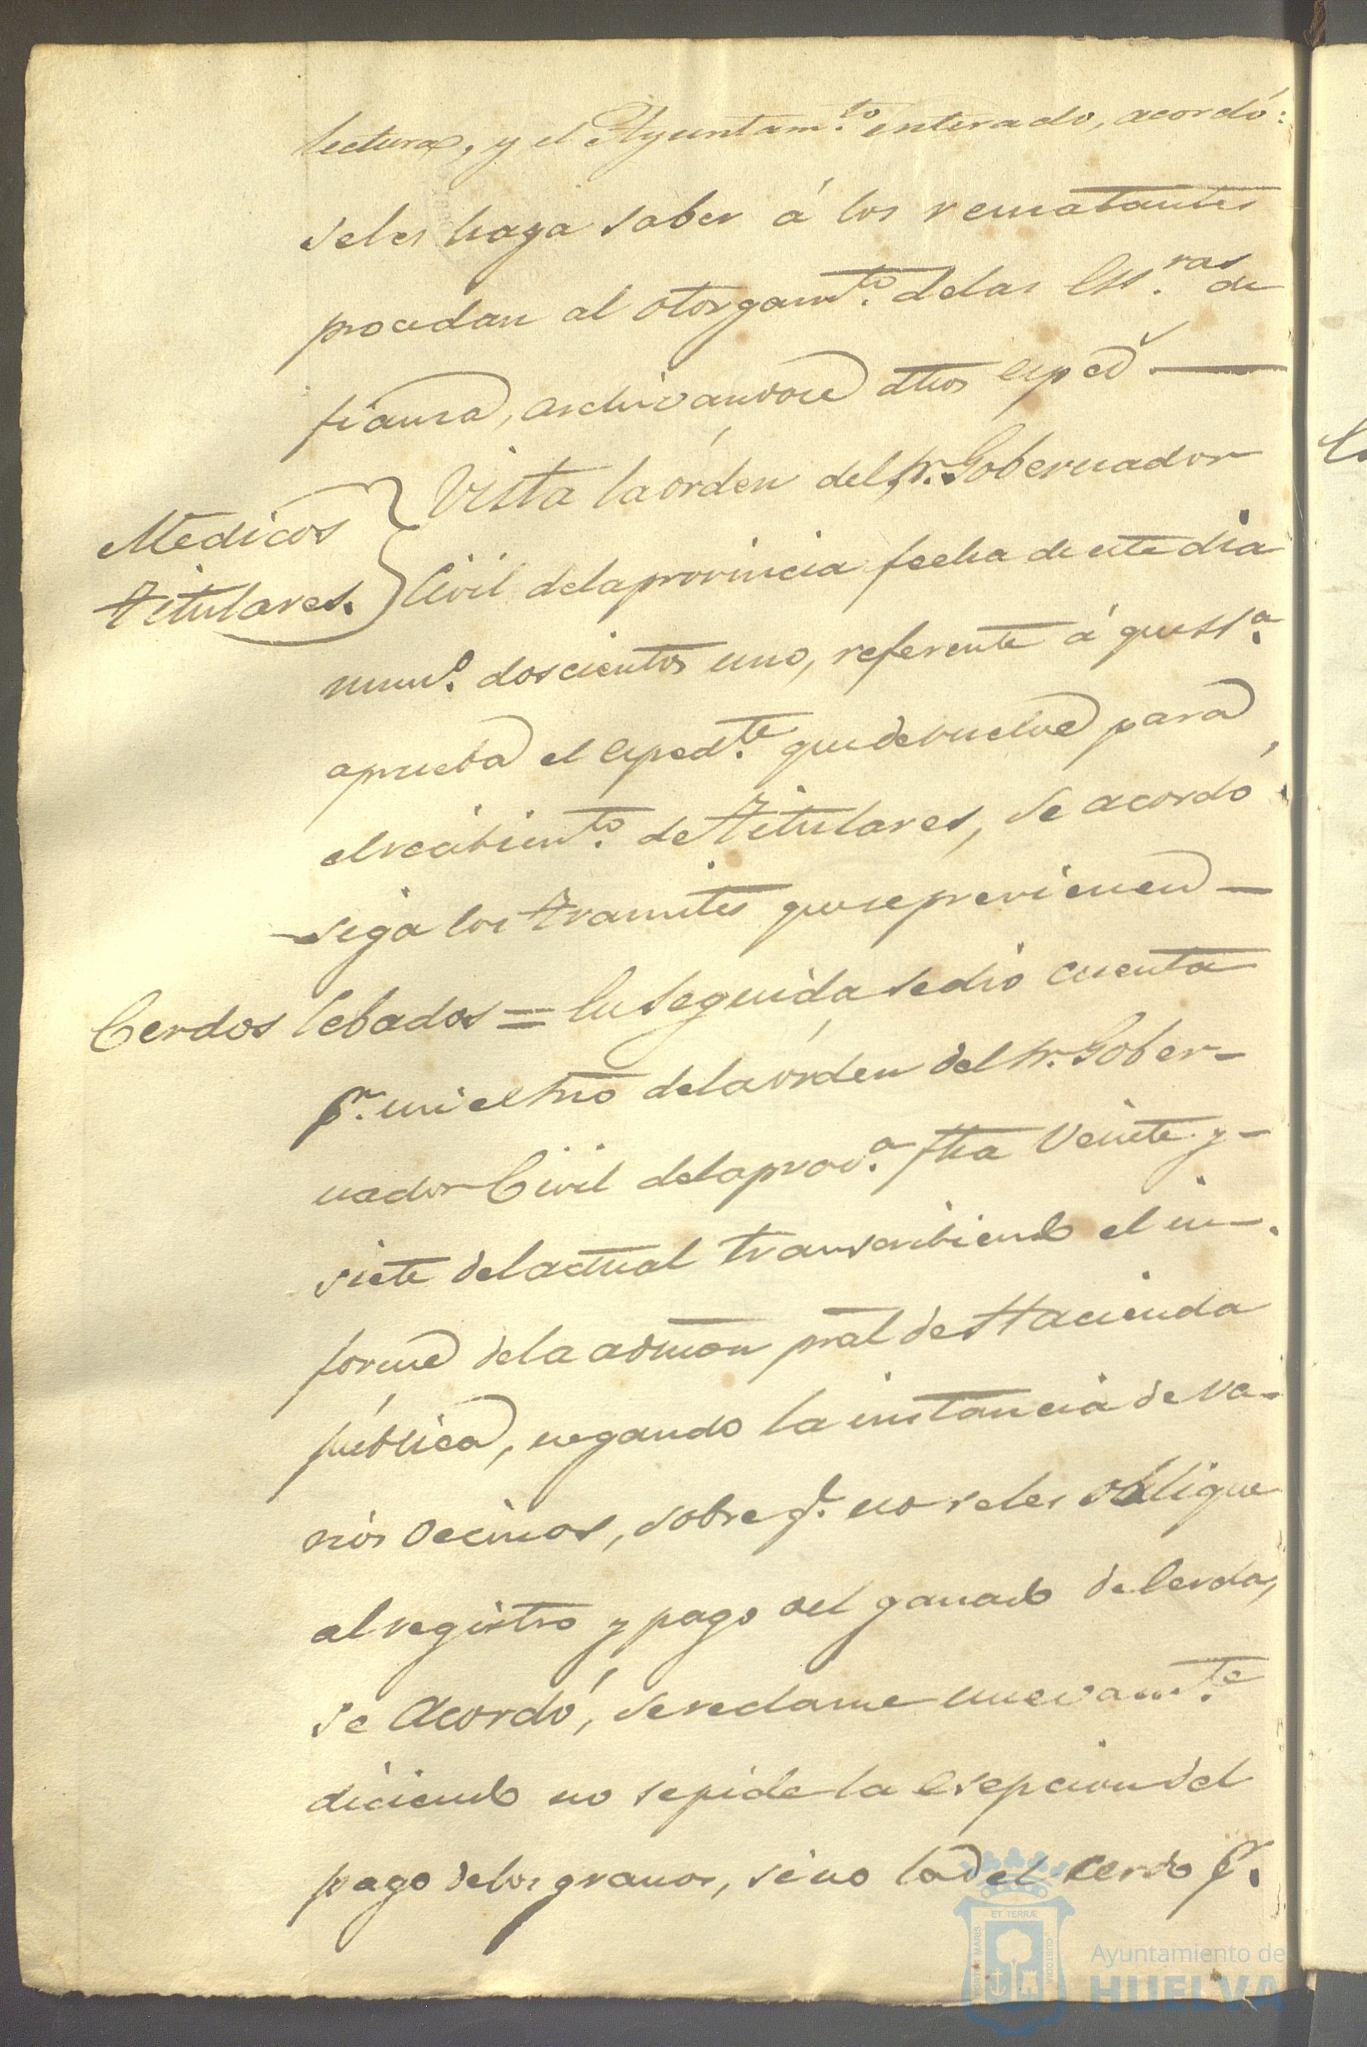 lectura, y el Ayuntam.to enterado, acordó:
seles haga saber á los rematantes
procedan al otorgam.to delas Ess.ras de
fianza, archivandose dhos esped.s —
Medicos
titulares. } Vista la órden del Sr. Gobernador
Civil dela provincia fecha de este dia
num.o doscientos uno, referente á que S.S.a
aprueba el esped.te que devuelve para
el recibim.to de titulares, se acordó,
siga los tramites que se previenen —
Cerdos Cebados = En seguida se dio cuenta
p.r mi el Srio dela órden del Sr. Gober-
nador Civil dela prov.a fha veinte y-
siete del actual transcribiendo el in-
forme dela admon pral de Hacienda
pública, negando la instancia de va-
rios vecinos, sobre q.e no seles obligue
al registro y pago del ganado de Cerda,
se Acordó, se reclame nuevam.te
diciendo no sepide la esepcion del
pago delos granos, sino la del cerdo p.r
PORTUS MARIS
ET TERRÆ
CUSTODIA
Ayuntamiento de
HUELVA